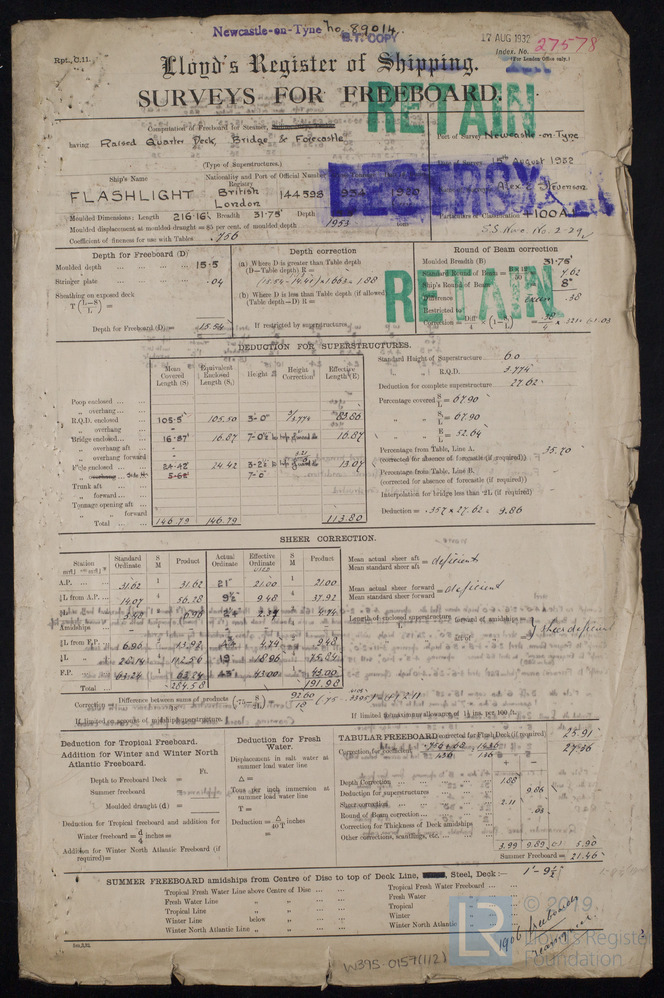 Newcastle-on-Tyne No. 89014.
B.T. COPY
17 AUG 1932
Index. No. 27578
(For London Office only.)
Rpt. C.11.
Lloyd's Register of Shipping.
SURVEYS FOR FREEBOARD.
RETAIN
Computation of Freeboard for Steamer,
having Raised Quarter Deck, Bridge & Forecastle
(Type of Superstructures.)
Port of Survey Newcastle-on-Tyne
Date of Survey 15th August 1932
Ship's Name
Nationality and Port of Registry
Official Number
FLASHLIGHT
British
London
144595
DESTROY
Alex. L. Stevenson
Moulded Dimensions: Length 216.16' Breadth 31.75' Depth
Moulded displacement at moulded draught = 85 per cent. of moulded depth 1953 tons
Coefficient of fineness for use with Tables .756
Particulars of Classification +100A1
Depth for Freeboard (D)
Moulded depth 15.5
Stringer plate .04
Sheathing on exposed deck
T (L-S / L) =
Depth for Freeboard (D) = 15.54
Depth correction
(a) Where D is greater than Table depth
(D—Table depth) R =
(15.54-14.41) × 1.663 = 1.88
(b) Where D is less than Table depth (if allowed)
(Table depth—D) R =
If restricted by superstructures
Round of Beam correction
Moulded Breadth (B) 31.75'
Standard Round of Beam = B×12/50 = 7.62
Ship's Round of Beam = 8"
Difference Excess .38
Restricted to
Correction = Diff/4 × (1-S/L) = .38/4 × .321 = -.03
RETAIN
DEDUCTION FOR SUPERSTRUCTURES.
Mean Covered Length (S)
Equivalent Enclosed Length (S₁)
Height
Height Correction
Effective Length (E)
Poop enclosed
„ overhang
R.Q.D. enclosed 105.5' 105.50 3'-0" 3/3.774 83.86
„ overhang
Bridge enclosed 16.87' 16.87 7'-0½" 16.87
„ overhang aft
„ overhang forward
F'cle enclosed 24.42 24.42 3'-2½" 13.07
„ overhang 5.62' 7'-0"
Trunk aft
„ forward
Tonnage opening aft
„ „ forward
Total 146.79 146.79 113.80
Standard Height of Superstructure 6.0
„ „ R.Q.D. 3.774
Deduction for complete superstructure 27.62
Percentage covered S/L = 67.90
„ „ S₁/L = 67.90
„ „ E/L = 52.64
Percentage from Table, Line A. 35.70
(corrected for absence of forecastle (if required))
Percentage from Table, Line B.
(corrected for absence of forecastle (if required))
Interpolation for bridge less than ·2L (if required)
Deduction = .357 × 27.62 = 9.86
SHEER CORRECTION.
Station
Standard Ordinate
S M
Product
Actual Ordinate
Effective Ordinate
S M
Product
A.P. 31.62 1 31.62 21" 21.00 1 21.00
⅙L from A.P. 14.07 4 56.28 9½" 9.48 4 37.92
Amidships
⅓L from F.P. 6.96 13.92 4.74 9.48
⅙L „ 28.14 112.56 19 18.96 75.84
F.P. 63.24 63.24 43" 43.00 43.00
Total 284.58 191.98
Mean actual sheer aft
Mean standard sheer aft = deficient
Mean actual sheer forward
Mean standard sheer forward = deficient
Length of enclosed superstructure forward of amidships =
„ aft of „ =
} sheer deficient
Correction = Difference between sums of products / 18 (·75 - S/2L) = 92.60/18 (.75 - .3395) = +2.11
If limited on account of midship superstructure.
If limited to maximum allowance of 1½ ins. per 100 ft.
Deduction for Tropical Freeboard.
Addition for Winter and Winter North Atlantic Freeboard.
Ft.
Depth to Freeboard Deck =
Summer freeboard =
Moulded draught (d) =
Deduction for Tropical freeboard and addition for
Winter freeboard = d/4 inches =
Addition for Winter North Atlantic Freeboard (if required) =
Deduction for Fresh Water.
Displacement in salt water at summer load water line
Δ =
Tons per inch immersion at summer load water line
T =
Deduction = Δ/40 T inches
=
TABULAR FREEBOARD corrected for Flush Deck (if required) 25.91
Correction for coefficient .756+.68 / 1.36 1.436 / 1.36 27.36
+ -
Depth Correction 1.88
Deduction for superstructures 9.86
Sheer correction 2.11
Round of Beam correction .03
Correction for Thickness of Deck amidships
Other corrections, scantlings, etc.
3.99 9.89 5.90
Summer Freeboard = 21.46
SUMMER FREEBOARD amidships from Centre of Disc to top of Deck Line, Steel, Deck :— 1'-9½"
Tropical Fresh Water Line above Centre of Disc
Fresh Water Line „ „
Tropical Line „ „
Winter Line below „
Winter North Atlantic Line „ „
Tropical Fresh Water Freeboard
Fresh Water „
Tropical „
Winter „
Winter North Atlantic „
1906 freeboards
reassigned.
W395-0157(1/2)
LR
© 2019.
Lloyd's Register
Foundation